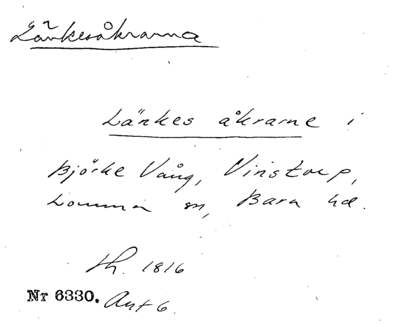 Länkesåkrarna
Länkes åkrarne i
Björke Vång, Vinstorp,
Lomma sn, Bara hd.
1816
Nr 6330. Akt 6.